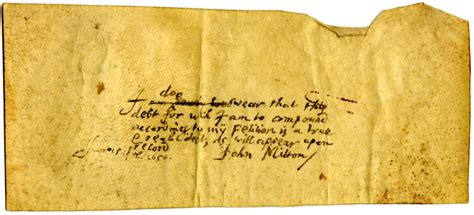 doe
I swear that this
debt for wch I am to compound
according to my petition is a true
& reall debt, as will appear upon
record John Milton
1650.